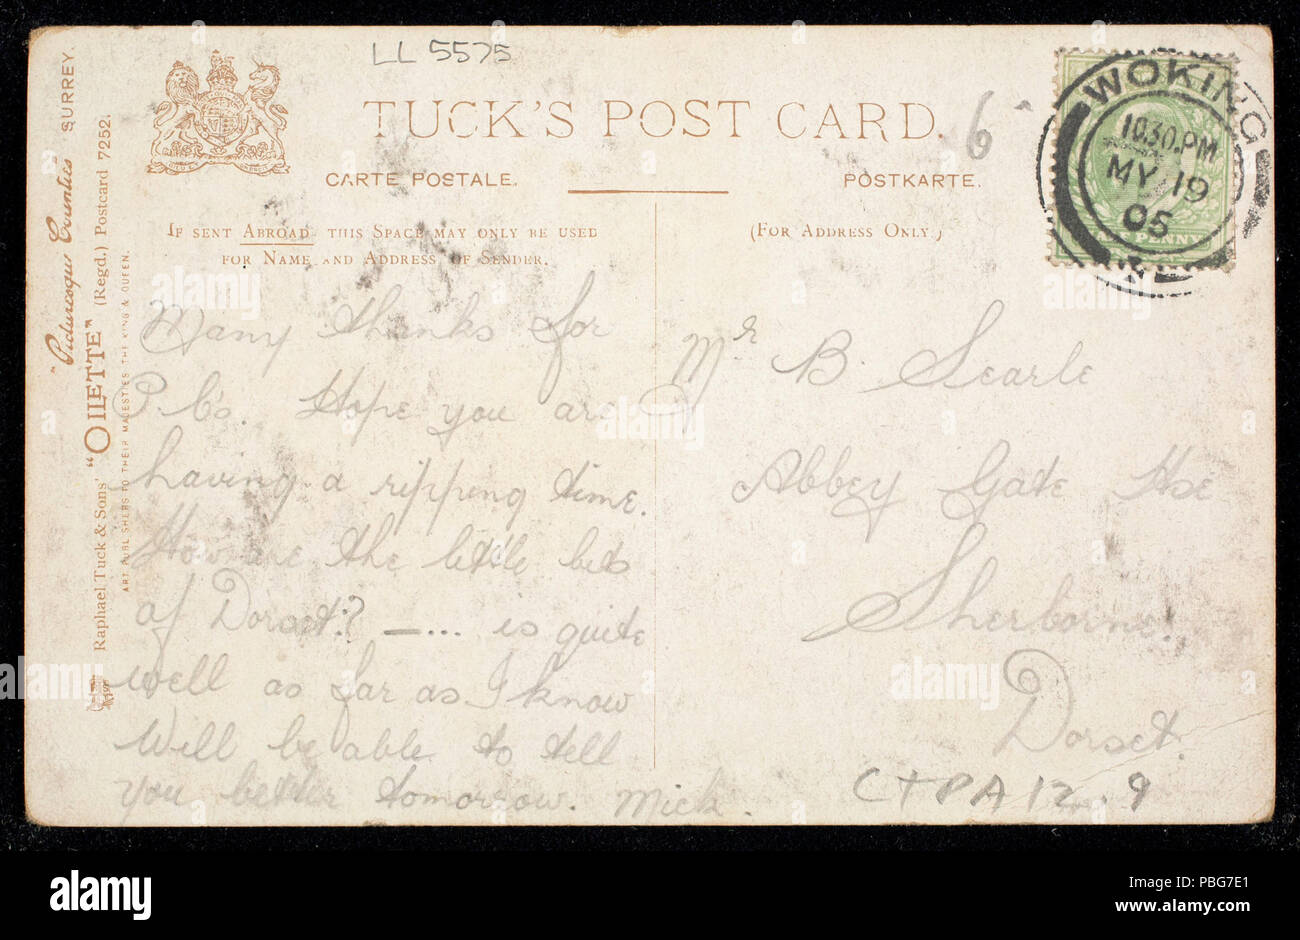 LL 5575
TUCK'S POST CARD.
6
CARTE POSTALE.
POSTKARTE.
IF SENT ABROAD THIS SPACE MAY ONLY BE USED
FOR NAME AND ADDRESS OF SENDER.
(FOR ADDRESS ONLY.)
WOKING
10.30.PM
MY 19
05
PENNY
"Picturesque Counties" SURREY.
Raphael Tuck & Sons' "OILETTE" (Regd.) Postcard 7252.
ART PUBLISHERS TO THEIR MAJESTIES THE KING & QUEEN.
Many thanks for
P.C's. Hope you are
having a ripping time.
How are the little bits
of Dorset? —... is quite
well as far as I know
Will be able to tell
you better tomorrow. Mick.
Mr B. Searle
Abbey Gate Hse
Sherborne.
Dorset.
C+PA 12.9
alamy
Image ID: PBG7E1
www.alamy.com